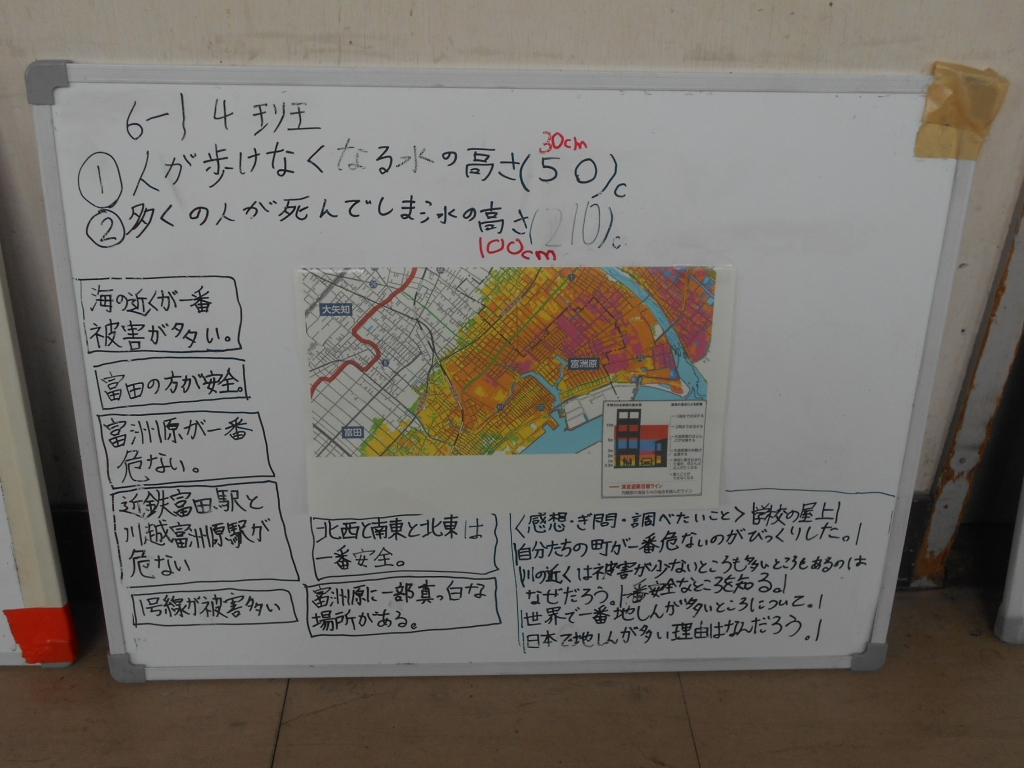 6-1 4 班
30cm
①人が歩けなくなる水の高さ(50)c
②多くの人が死んでしまう水の高さ(210)c
100cm
海の近くが一番
被害が多い。
富田の方が安全。
富洲原が一番
危ない。
近鉄富田駅と
川越富洲原駅が
危ない
1号線が被害多い
大矢知
富洲原
富田
北西と南東と北東は
一番安全。
富洲原に一部真っ白な
場所がある。
〈感想・ぎ問・調べたいこと〉学校の屋上
自分たちの町が一番危ないのがびっくりした。
川の近くは被害が少ないところも多いところもあるのは
なぜだろう。一番安全なところを知る。
世界で一番地しんが多いところについて。
日本で地しんが多い理由はなんだろう。